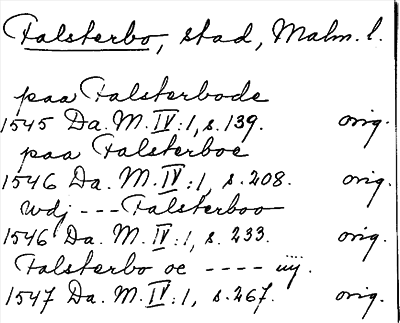 Falsterbo, stad, Malm. l.
paa Falsterbode
1545 Da. M. IV:1, s. 139. orig.
paa Falsterboe
1546 Da. M. IV:1, s. 208. orig.
wdj --- Falsterboo
1546 Da. M. IV:1, s. 233. orig.
Falsterbo oc ---- iiij.
1547 Da. M. IV:1, s. 267. orig.